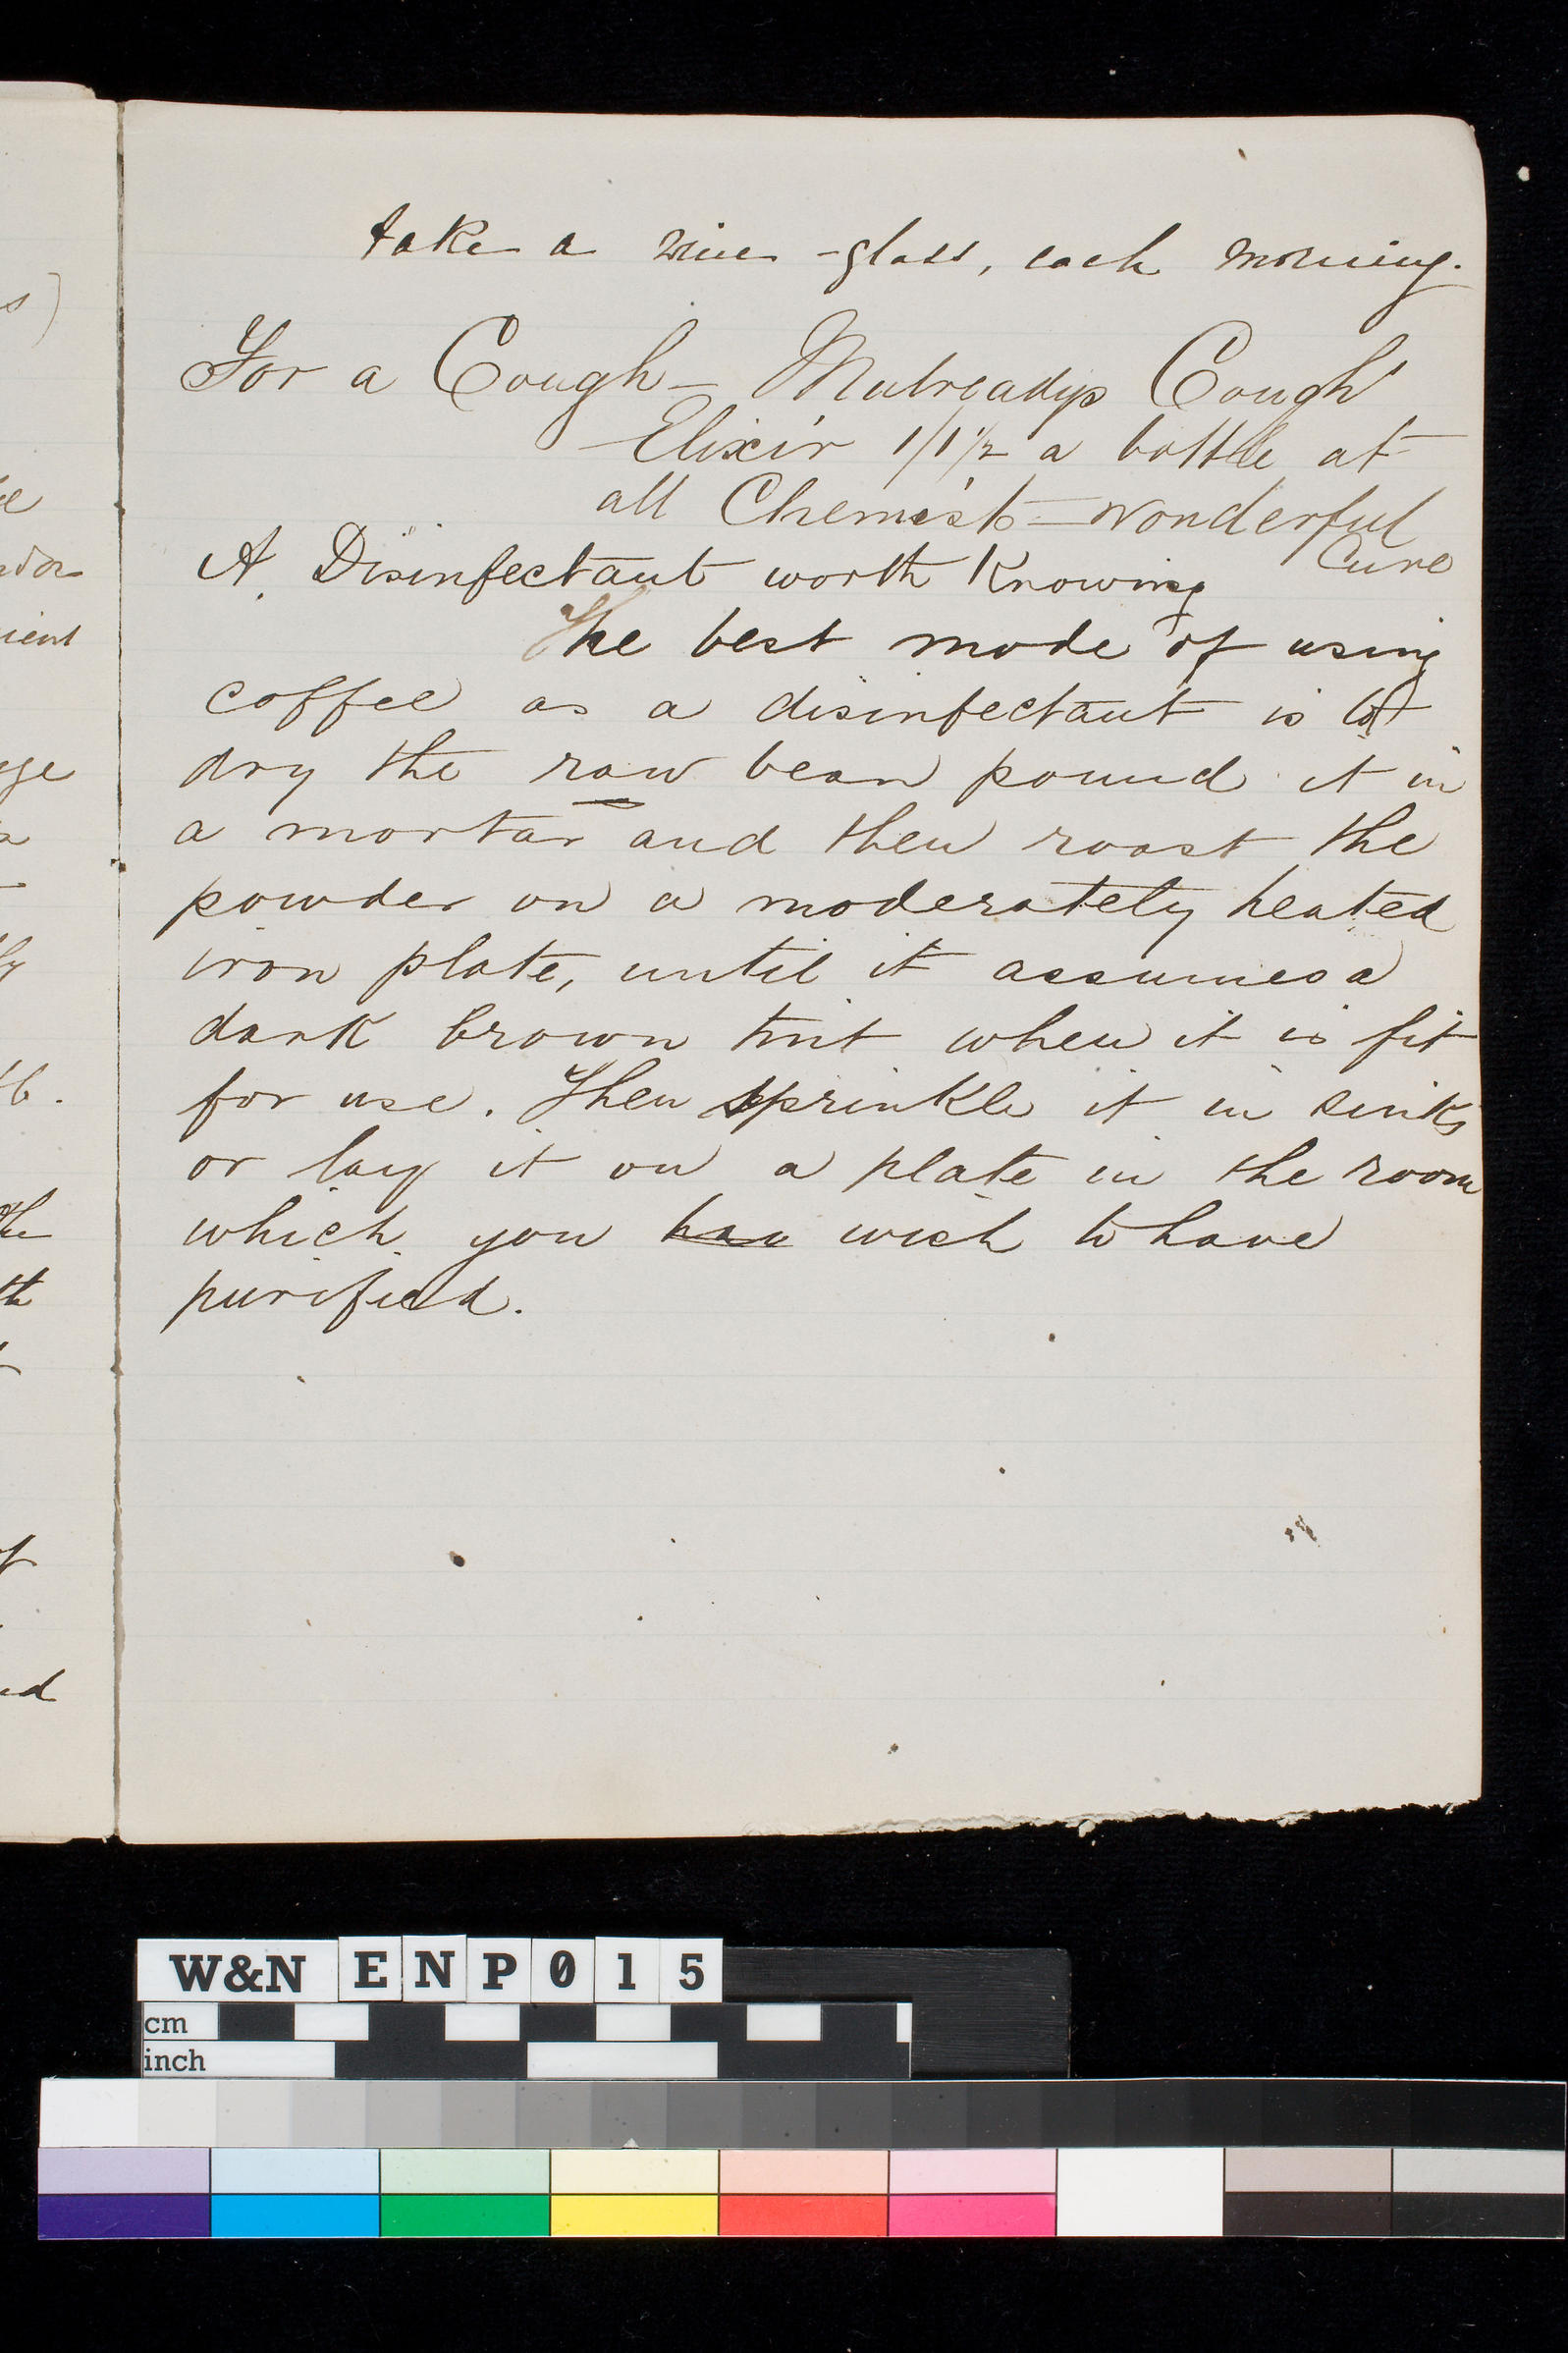 take a wine-glass, each morning.
For a Cough - Mulreadys Cough
Elixir 1/1½ a bottle at
all Chemists - wonderful
Cure
A Disinfectant worth Knowing
The best mode of using
coffee as a disinfectant is to
dry the raw bean pound it in
a mortar and then roast the
powder on a moderately heated
iron plate, until it assumes a
dark brown tint when it is fit
for use. Then sprinkle it in sinks
or lay it on a plate in the room
which you hav wish to have
purified.
W&N ENP015
cm
inch